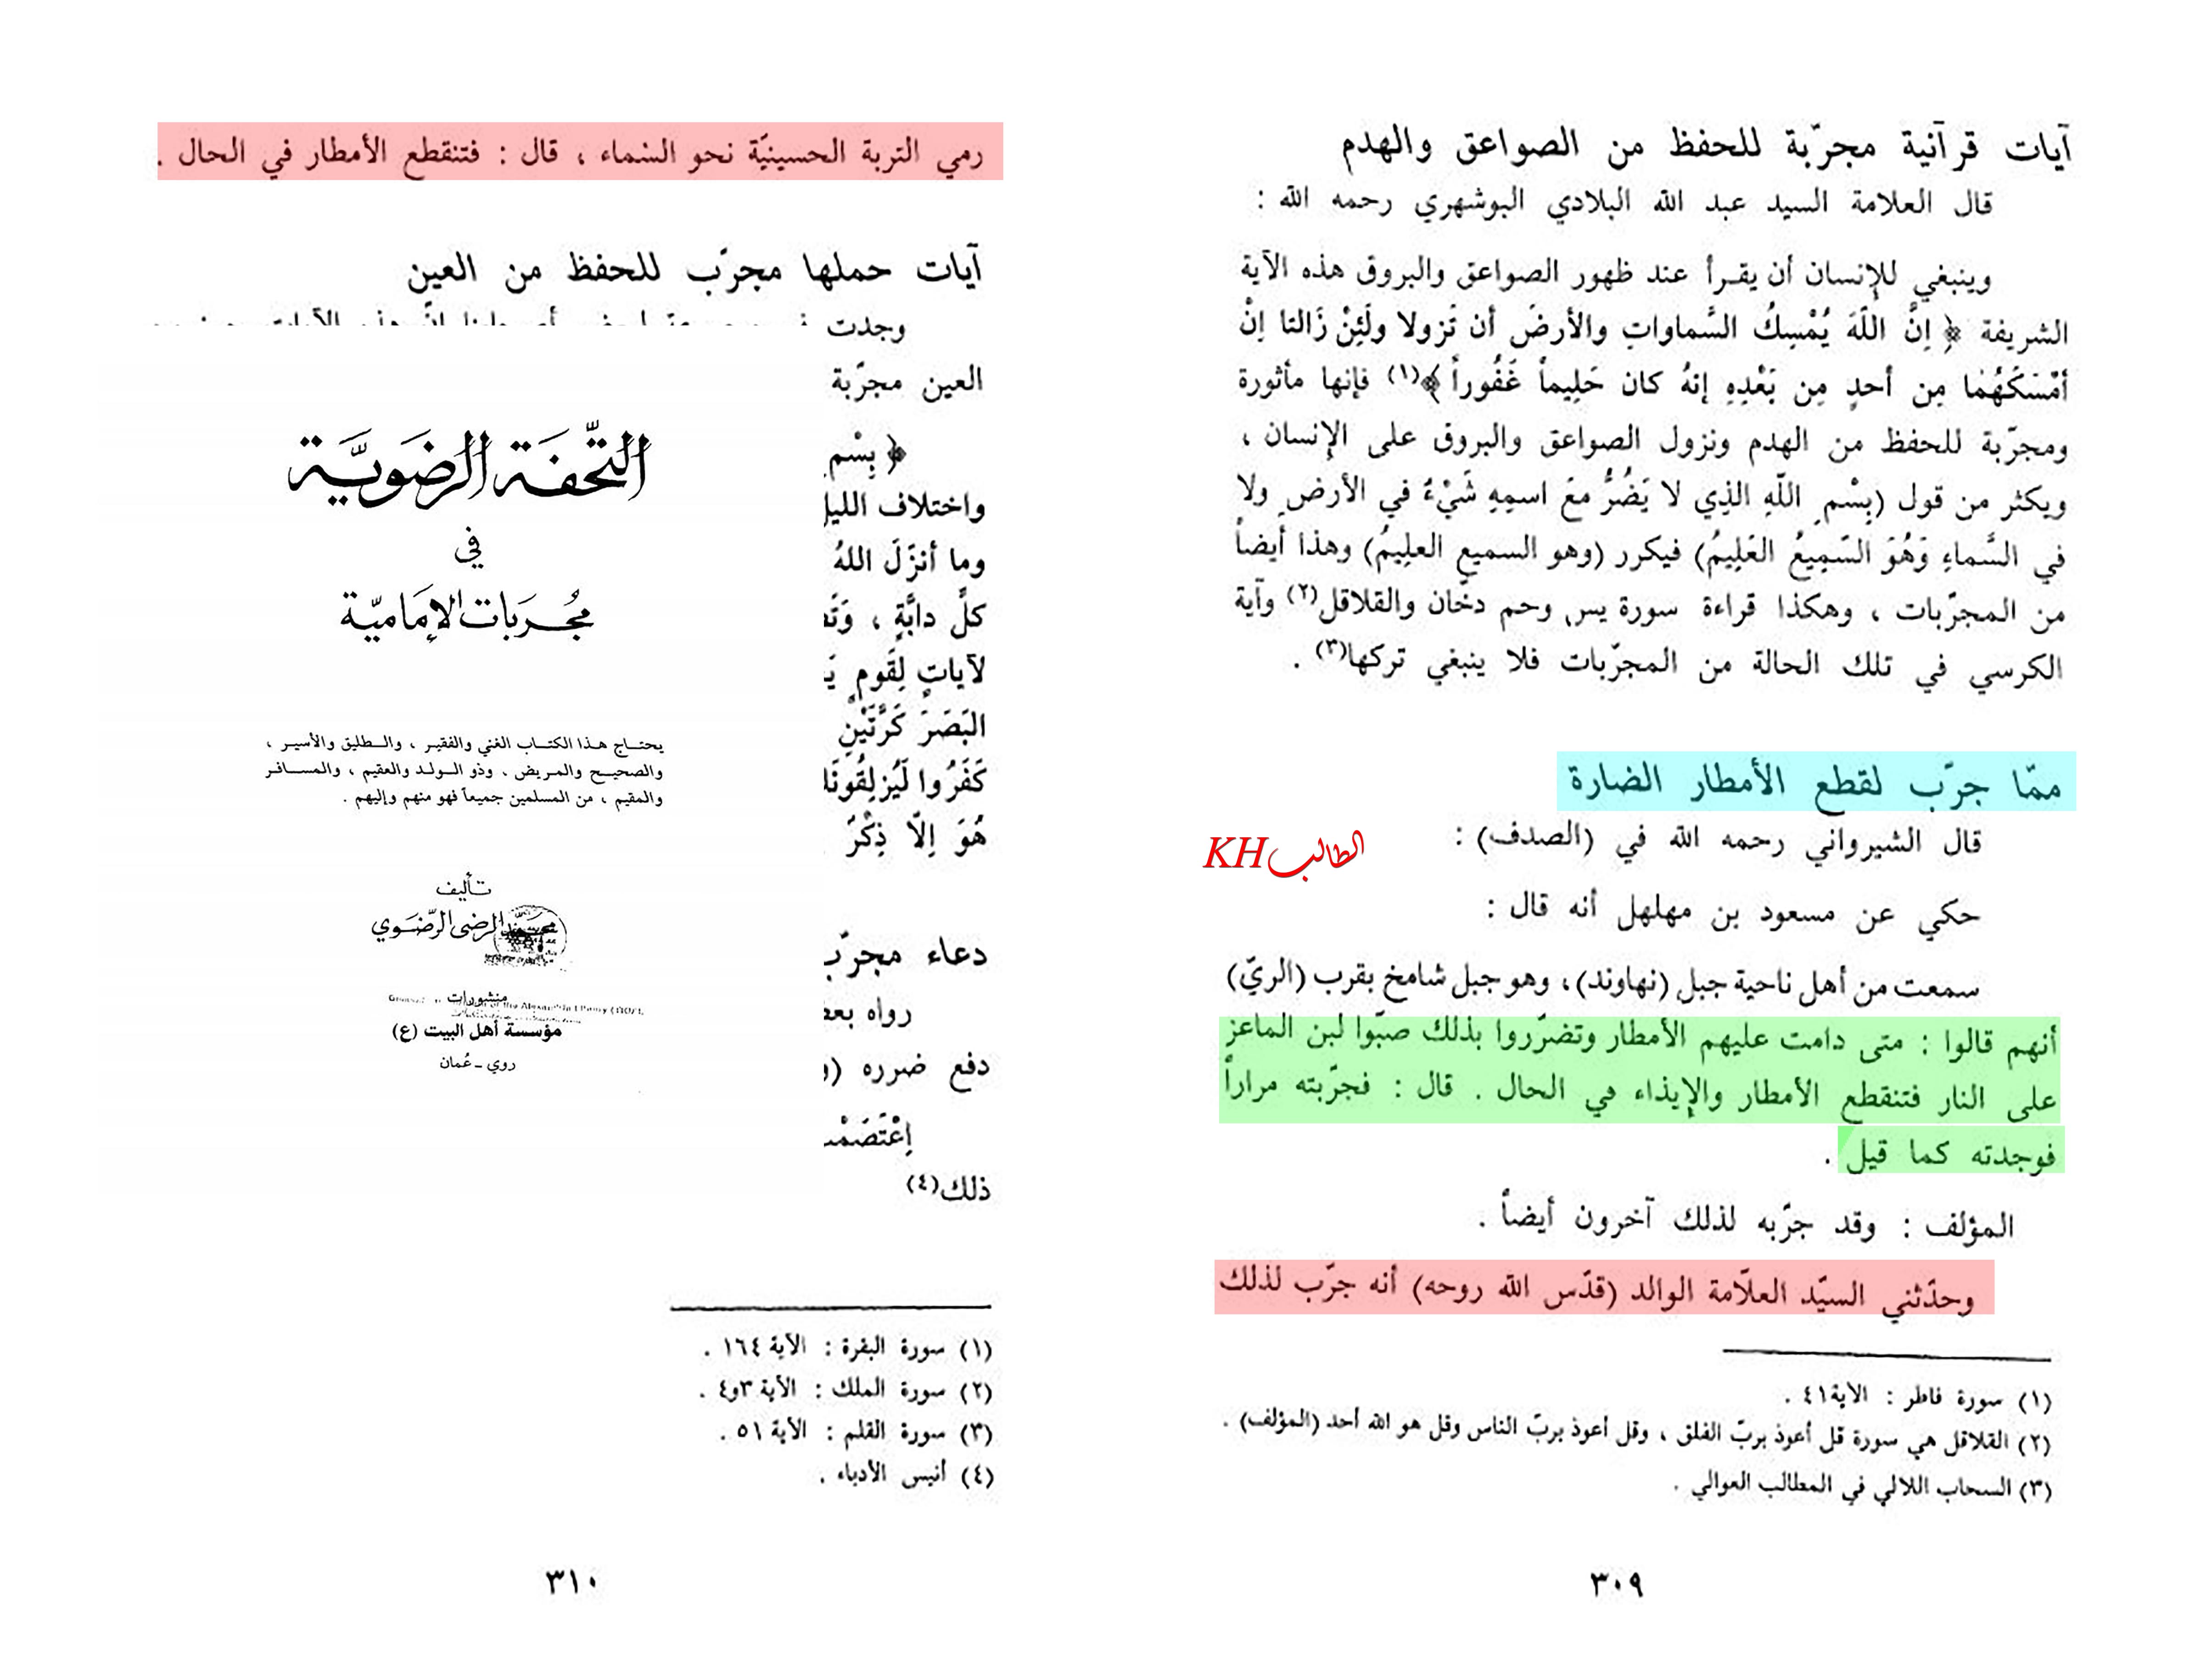 آيات قرآنية مجرّبة للحفظ من الصواعق والهدم
قال العلامة السيد عبد الله البلادي البوشهري رحمه الله :
وينبغي للإنسان أن يقرأ عند ظهور الصواعق والبروق هذه الآية
الشريفة ﴿ إنَّ اللّهَ يُمْسِكُ السَّماواتِ والأرضَ أن تَزولا ولَئِنْ زَالتا إنْ
أمْسَكَهُمٰا مِن أحدٍ مِن بَعْدِهِ إنهُ كان حَلِيماً غَفُوراً ﴾(١) فإنها مأثورة
ومجرّبة للحفظ من الهدم ونزول الصواعق والبروق على الإنسان ،
ويكثر من قول (بِسْمِ اللّهِ الذِي لا يَضُرُّ معَ اسمِهِ شَيْءٌ في الأرضِ ولا
في السَّماءِ وَهُوَ السَّمِيعُ العَلِيمُ) فيكرر (وهو السميع العلِيمُ) وهذا أيضاً
من المجرّبات ، وهكذا قراءة سورة يس وحم دخّان والقلاقل(٢) وآية
الكرسي في تلك الحالة من المجرّبات فلا ينبغي تركها(٣) .
ممّا جرّب لقطع الأمطار الضارة
قال الشيرواني رحمه الله في (الصدف) :
الطالب KH
حكي عن مسعود بن مهلهل أنه قال :
سمعت من أهل ناحية جبل (نهاوند)، وهو جبل شامخ بقرب (الريّ)
أنهم قالوا : متى دامت عليهم الأمطار وتضرّروا بذلك صبّوا لبن الماعز
على النار فتنقطع الأمطار والإيذاء في الحال . قال : فجرّبته مراراً
فوجدته كما قيل .
المؤلف : وقد جرّبه لذلك آخرون أيضاً .
وحدّثني السيّد العلاّمة الوالد (قدّس الله روحه) أنه جرّب لذلك
(١) سورة فاطر : الآية ٤١ .
(٢) القلاقل هي سورة قل أعوذ بربّ الفلق ، وقل أعوذ بربّ الناس وقل هو الله أحد (المؤلف) .
(٣) السحاب اللالي في المطالب العوالي .
٣٠٩
رمي التربة الحسينيّة نحو السّماء ، قال : فتنقطع الأمطار في الحال .
آيات حملها مجرّب للحفظ من العين
وجدت
العين مجرّبة
﴿ بِسْمِ
واختلاف الليل
وما أنزَلَ اللهُ
كلِّ دابَّةٍ ،
لآياتٍ لِقَومٍ
البَصَرَ كَرَّتَيْنِ
كَفَرُوا لَيُزلِقُونَكَ
هُوَ اِلّا ذِكْرٌ
دعاء مجرّب
رواه
دفع ضرره
ذلك(٤)
(١) سورة البقرة : الآية ١٦٤ .
(٢) سورة الملك : الآية ٣و٤ .
(٣) سورة القلم : الآية ٥١ .
(٤) أنيس الأدباء .
٣١٠
التّحفة الرضَويَّة
في
مُجربات الإمَاميّة
يحتاج هذا الكتاب الغني والفقير ، والطليق والأسير ،
والصحيح والمريض ، وذو الولد والعقيم ، والمسافر
والمقيم ، من المسلمين جميعاً فهو منهم وإليهم .
تأليف
محمّد الرضي الرّضَوي
منشورات
مؤسسة أهل البيت (ع)
روي - عُمان